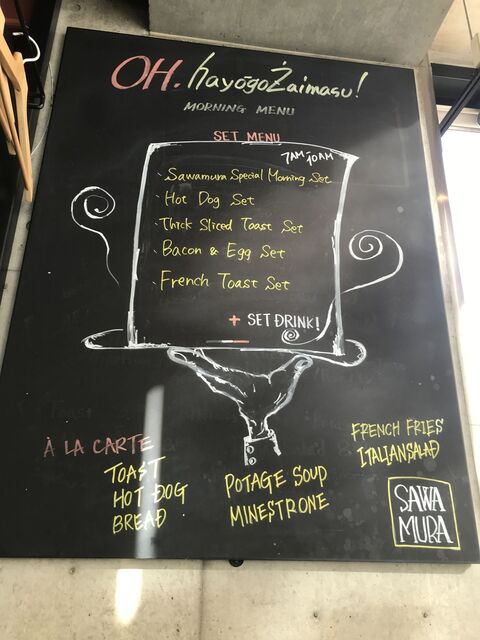 OH. hayōgoZaimasu!
MORNING MENU
SET MENU
7AM-10AM
Sawamura Special Morning Set
Hot Dog Set
Thick Sliced Toast Set
Bacon & Egg Set
French Toast Set
+ SET DRINK!
À LA CARTE
TOAST
HOT DOG
BREAD
POTAGE SOUP
MINESTRONE
FRENCH FRIES
ITALIAN SALAD
SAWA
MURA